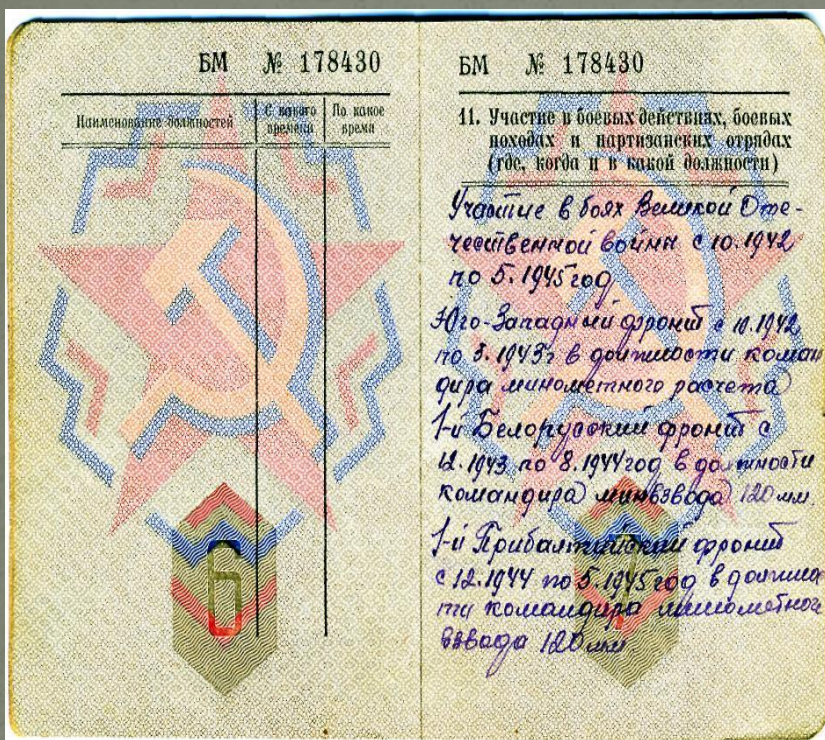 БМ № 178430
Наименование должностей
С какого времени
По какое время
6
БМ № 178430
11. Участие в боевых действиях, боевых
походах и партизанских отрядах
(где, когда и в какой должности)
Участие в боях Великой Оте-
чественной войны с 10.1942
по 5.1945 год
Юго-Западный фронт с 10.1942
по 3.1943г в должности коман
дира минометного расчета
1-й Белорусский фронт с
12.1943 по 8.1944 год в должности
командира минвзвода 120 мм.
1-й Прибалтийский фронт
с 12.1944 по 5.1945 год в должнос
ти командира минометног
взвода 120 мм.
7